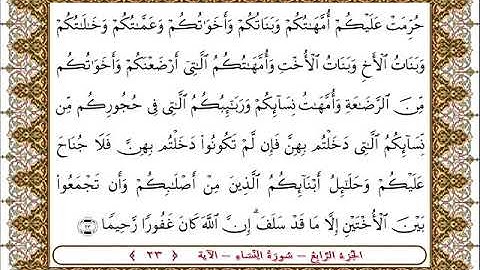 حُرِّمَتْ عَلَيْكُمْ أُمَّهَٰتُكُمْ وَبَنَاتُكُمْ وَأَخَوَٰتُكُمْ وَعَمَّٰتُكُمْ وَخَٰلَٰتُكُمْ
وَبَنَاتُ ٱلْأَخِ وَبَنَاتُ ٱلْأُخْتِ وَأُمَّهَٰتُكُمُ ٱلَّٰتِىٓ أَرْضَعْنَكُمْ وَأَخَوَٰتُكُم
مِّنَ ٱلرَّضَٰعَةِ وَأُمَّهَٰتُ نِسَآئِكُمْ وَرَبَٰٓئِبُكُمُ ٱلَّٰتِى فِى حُجُورِكُم مِّن
نِّسَآئِكُمُ ٱلَّٰتِى دَخَلْتُم بِهِنَّ فَإِن لَّمْ تَكُونُوا۟ دَخَلْتُم بِهِنَّ فَلَا جُنَاحَ
عَلَيْكُمْ وَحَلَٰٓئِلُ أَبْنَآئِكُمُ ٱلَّذِينَ مِنْ أَصْلَٰبِكُمْ وَأَن تَجْمَعُوا۟
بَيْنَ ٱلْأُخْتَيْنِ إِلَّا مَا قَدْ سَلَفَ ۗ إِنَّ ٱللَّهَ كَانَ غَفُورًا رَّحِيمًا ٢٣
الجزء الرّابع - سورة النّساء - الآية ﴿ ٢٣ ﴾